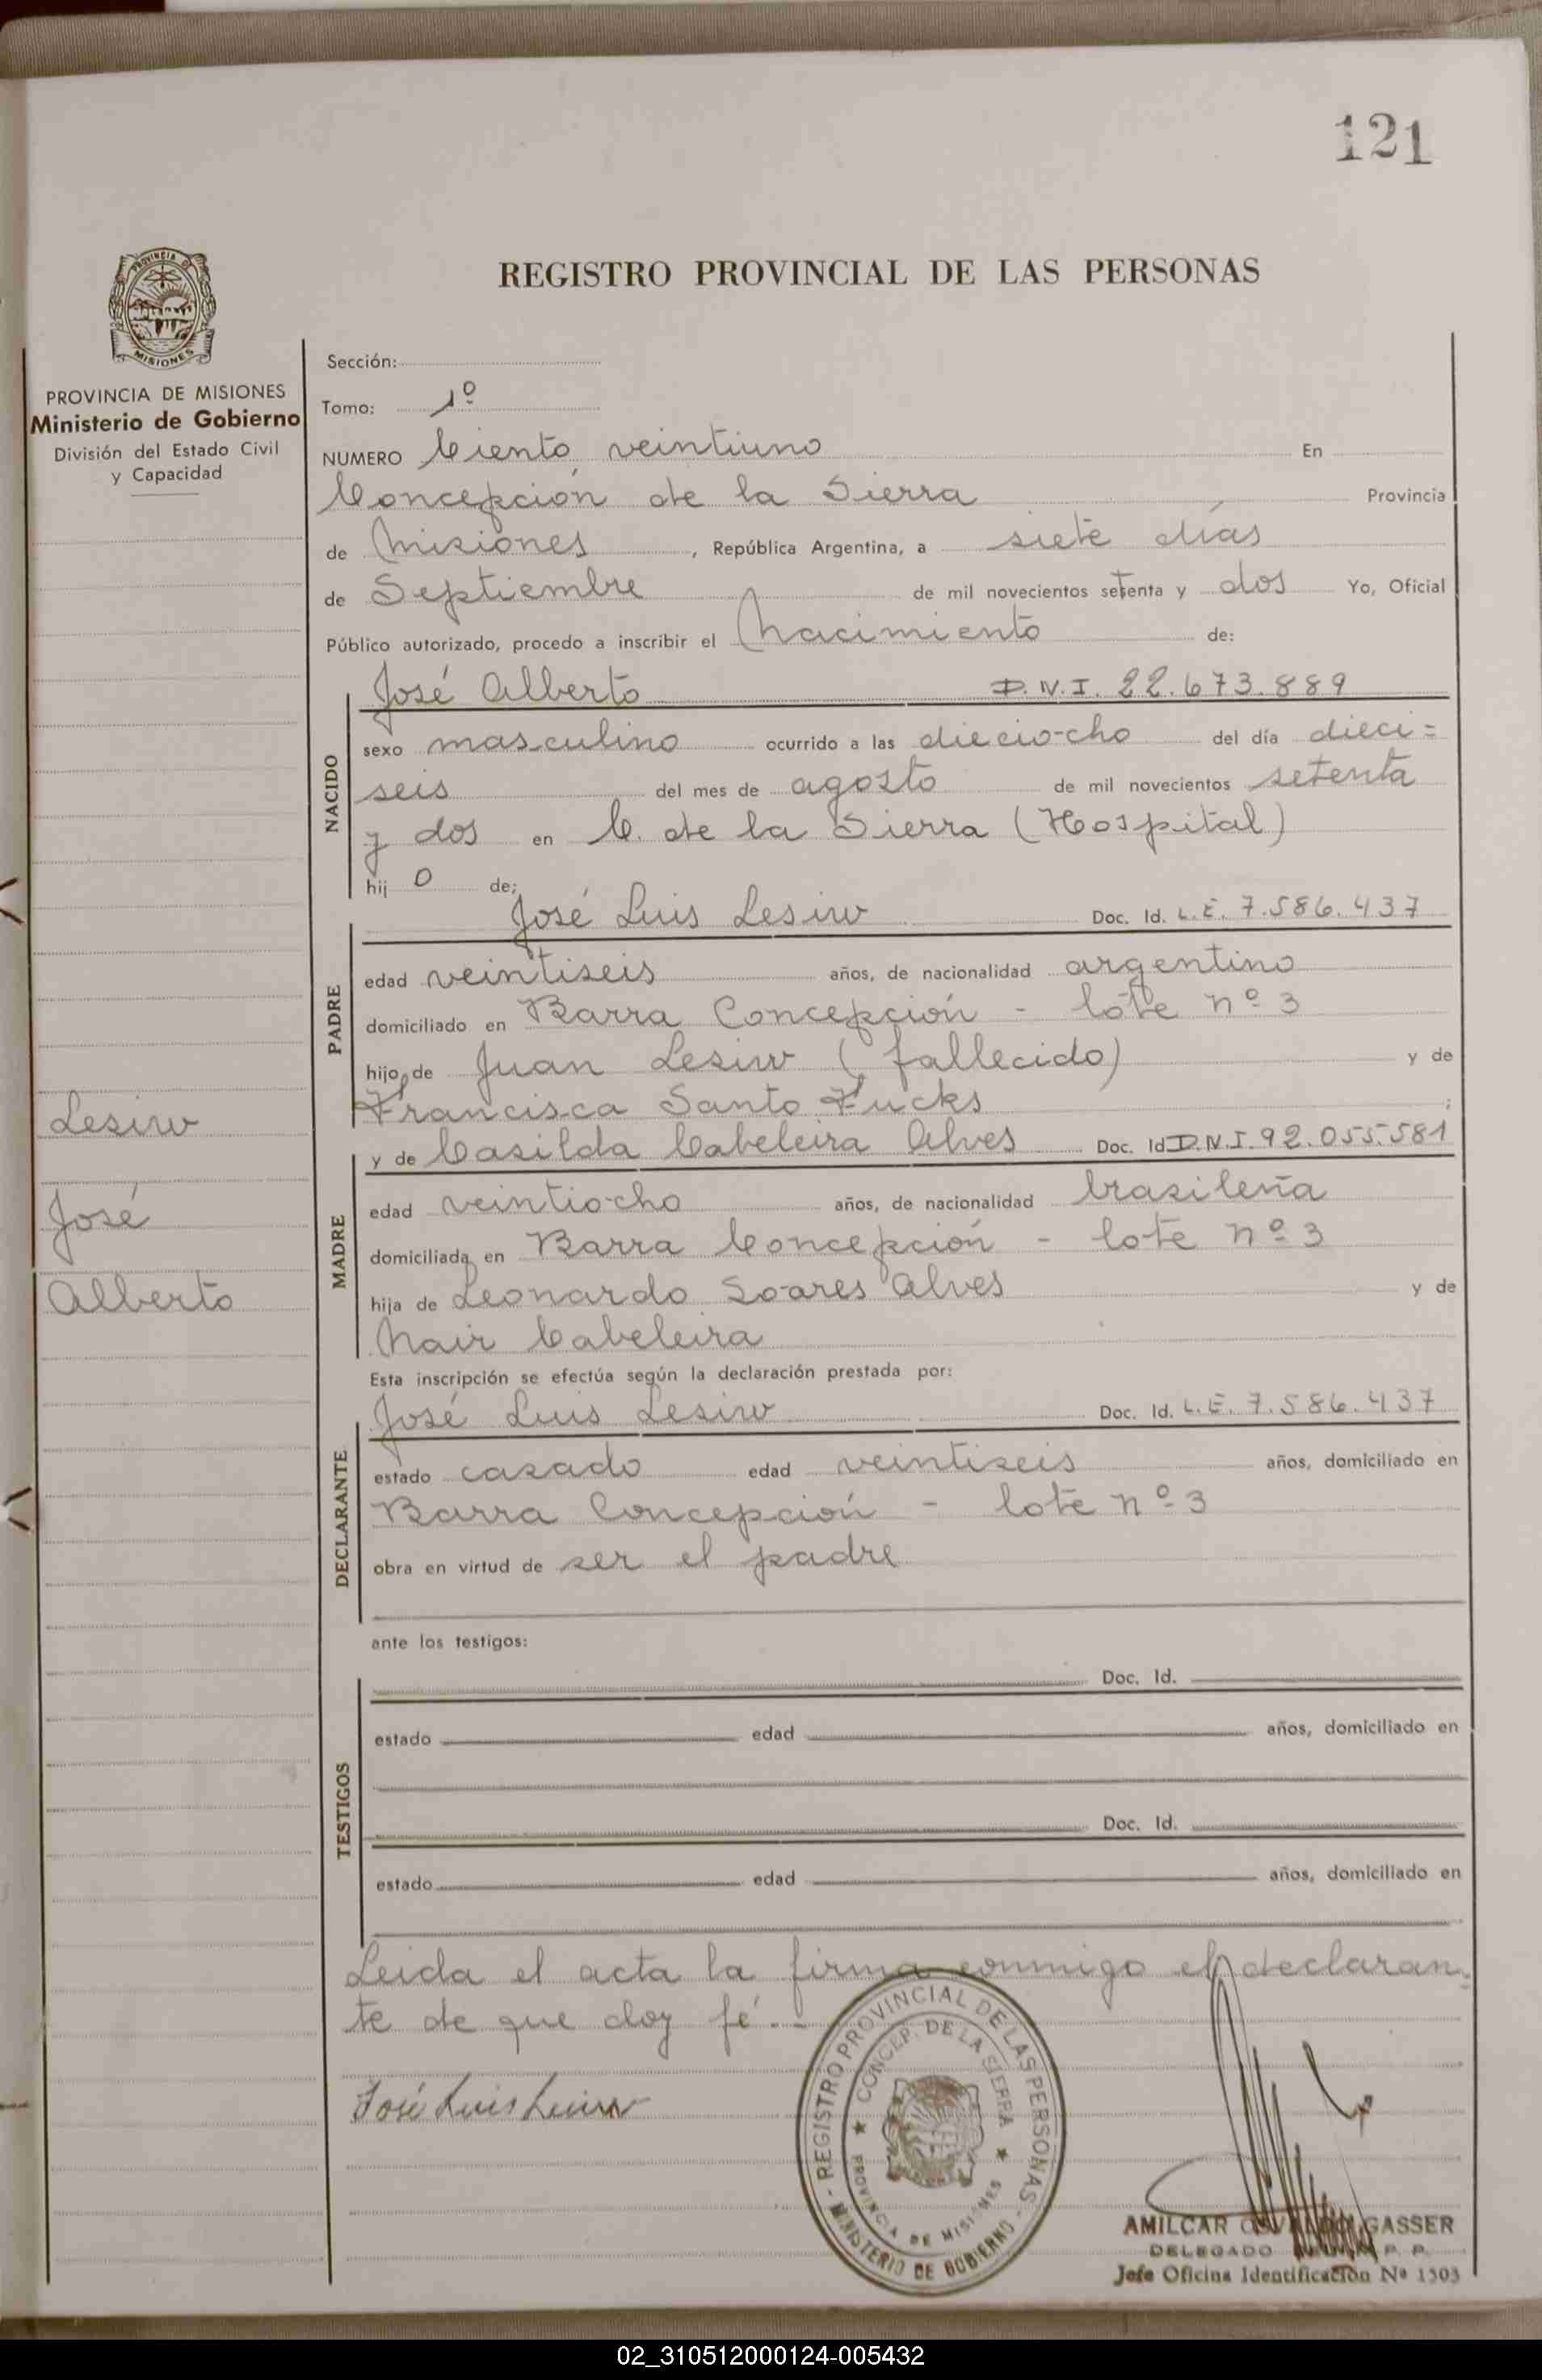 121
REGISTRO PROVINCIAL DE LAS PERSONAS
PROVINCIA DE
MISIONES
PROVINCIA DE MISIONES
Ministerio de Gobierno
División del Estado Civil
y Capacidad
Lesiw
José
Alberto
Sección:
Tomo: 1º
NUMERO Ciento veintiuno En
Concepción de la Sierra Provincia
de Misiones, República Argentina, a siete días
de Septiembre de mil novecientos setenta y dos Yo, Oficial
Público autorizado, procedo a inscribir el Nacimiento de:
José Alberto D.N.I. 22.673.889
NACIDO
sexo masculino ocurrido a las dieciocho del día dieci=
seis del mes de agosto de mil novecientos setenta
y dos en C. de la Sierra (Hospital)
hij o de;
José Luis Lesiw Doc. Id. L.E. 7.586.437
PADRE
edad veintiseis años, de nacionalidad argentino
domiciliado en Barra Concepción - lote nº 3
hijo de Juan Lesiw (fallecido) y de
Francisca Santo Fucks ;
y de Casilda Cabeleira Alves Doc. Id D.N.I. 92.055.581
MADRE
edad veintiocho años, de nacionalidad brasileña
domiciliada en Barra Concepción - lote nº 3
hija de Leonardo Soares Alves y de
Nair Cabeleira
Esta inscripción se efectúa según la declaración prestada por:
José Luis Lesiw Doc. Id. L.E. 7.586.437
DECLARANTE
estado casado edad veintiseis años, domiciliado en
Barra Concepción - lote nº 3
obra en virtud de ser el padre
ante los testigos:
TESTIGOS
Doc. Id.
estado edad años, domiciliado en
Doc. Id.
estado edad años, domiciliado en
Leida el acta la firma conmigo el declaran-
te de que doy fé.-
José Luis Lesiw
REGISTRO PROVINCIAL DE LAS PERSONAS - MINISTERIO DE GOBIERNO -
CONCEP. DE LA SIERRA
PROVINCIA DE MISIONES
AMILCAR OSVALDO GASSER
DELEGADO P. P.
Jefe Oficina Identificación Nº 1503
02_310512000124-005432